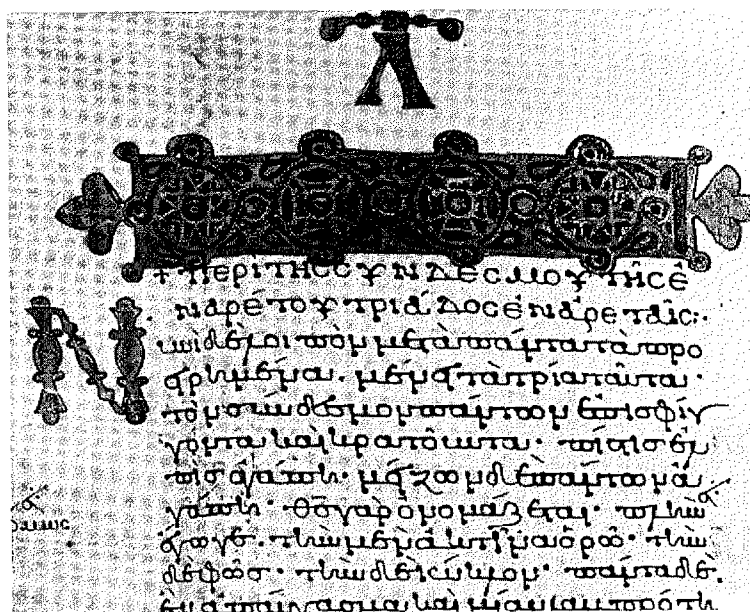 Λ
+ ΠΕΡΙ ΤΗC CΥΝΔΕCΜΟΥ ΤΗC Ἐ
ΝΑΡΕΤΟΥ ΤΡΙΑΔΟC ἘΝ ἈΡΕΤΑΙC:·
Νυνὶ δὲ λοιπὸν μετὰ πάντα τὰ προ
ειρημένα. μένει τὰ τρία ταῦτα·
τὸν σύνδεσμον πάντων ἐπισφίγ
γοντα καὶ κρατοῦντα· πίστις ἐλ
πὶς ἀγάπη· μείζων δὲ πάντων ἀ
γάπη· θς γὰρ ὀνομάζεται· πλὴν
ἔγωγε. τὴν μὲν ἀκτῖνα ὁρῶ· τὴν
δὲ φῶς· τὴν δὲ κύκλον· πάντα δὲ.
ἓν ἀπαύγασμα καὶ μίαν λαμπρότη